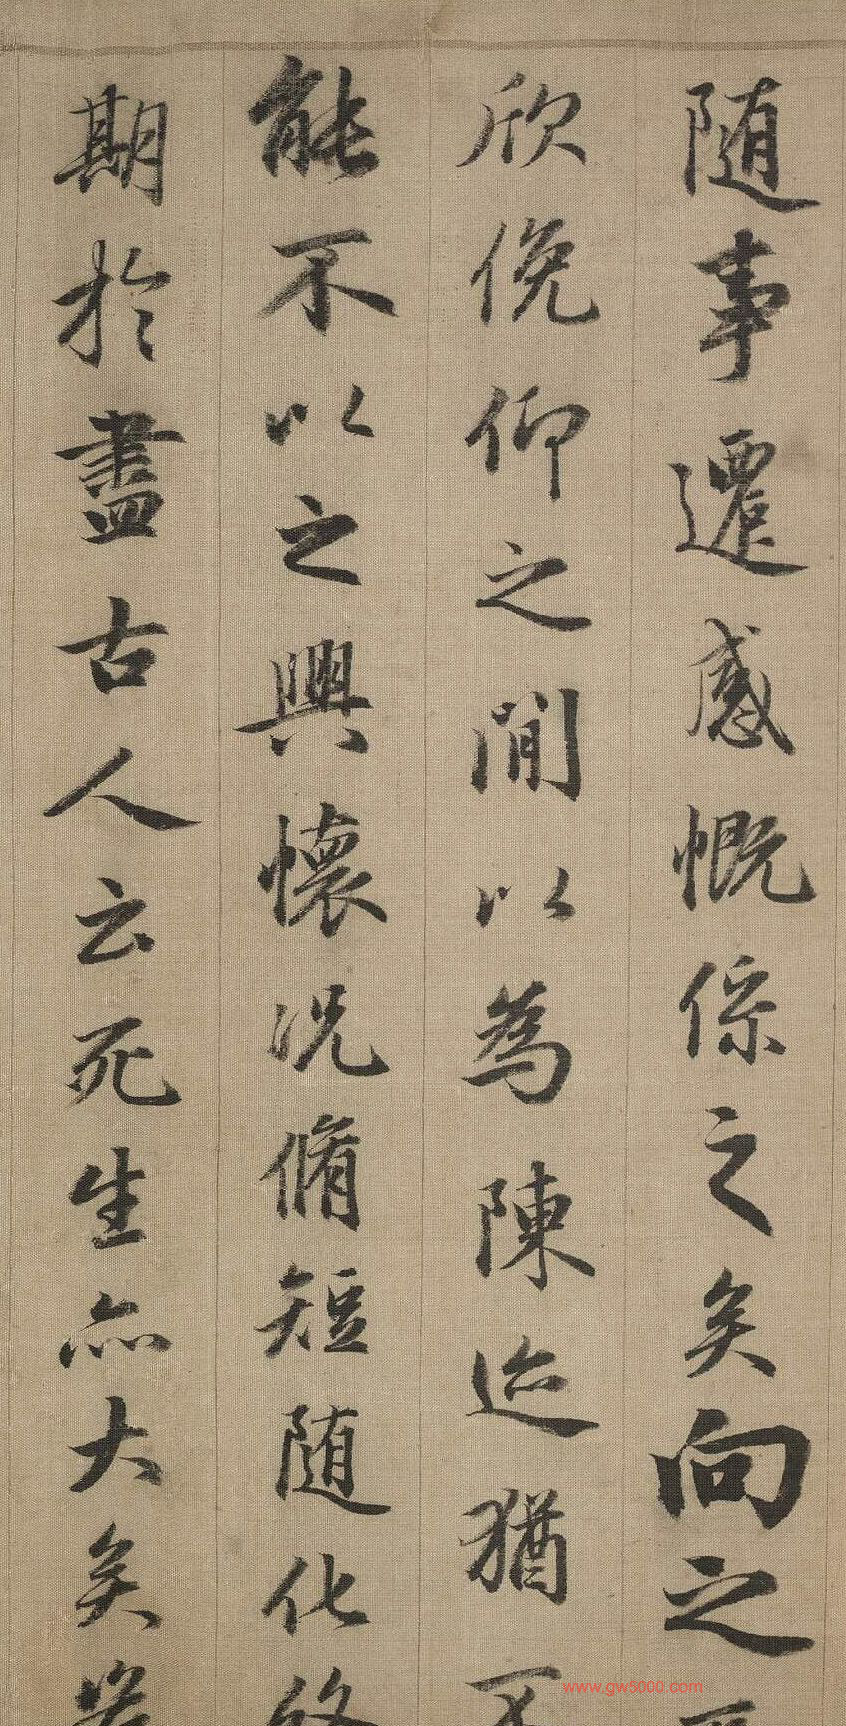 随事遷感慨係之矣向之
欣俛仰之間以為陳迹猶不
能不以之興懷況脩短随化終
期於盡古人云死生亦大矣豈
www.gw5000.com